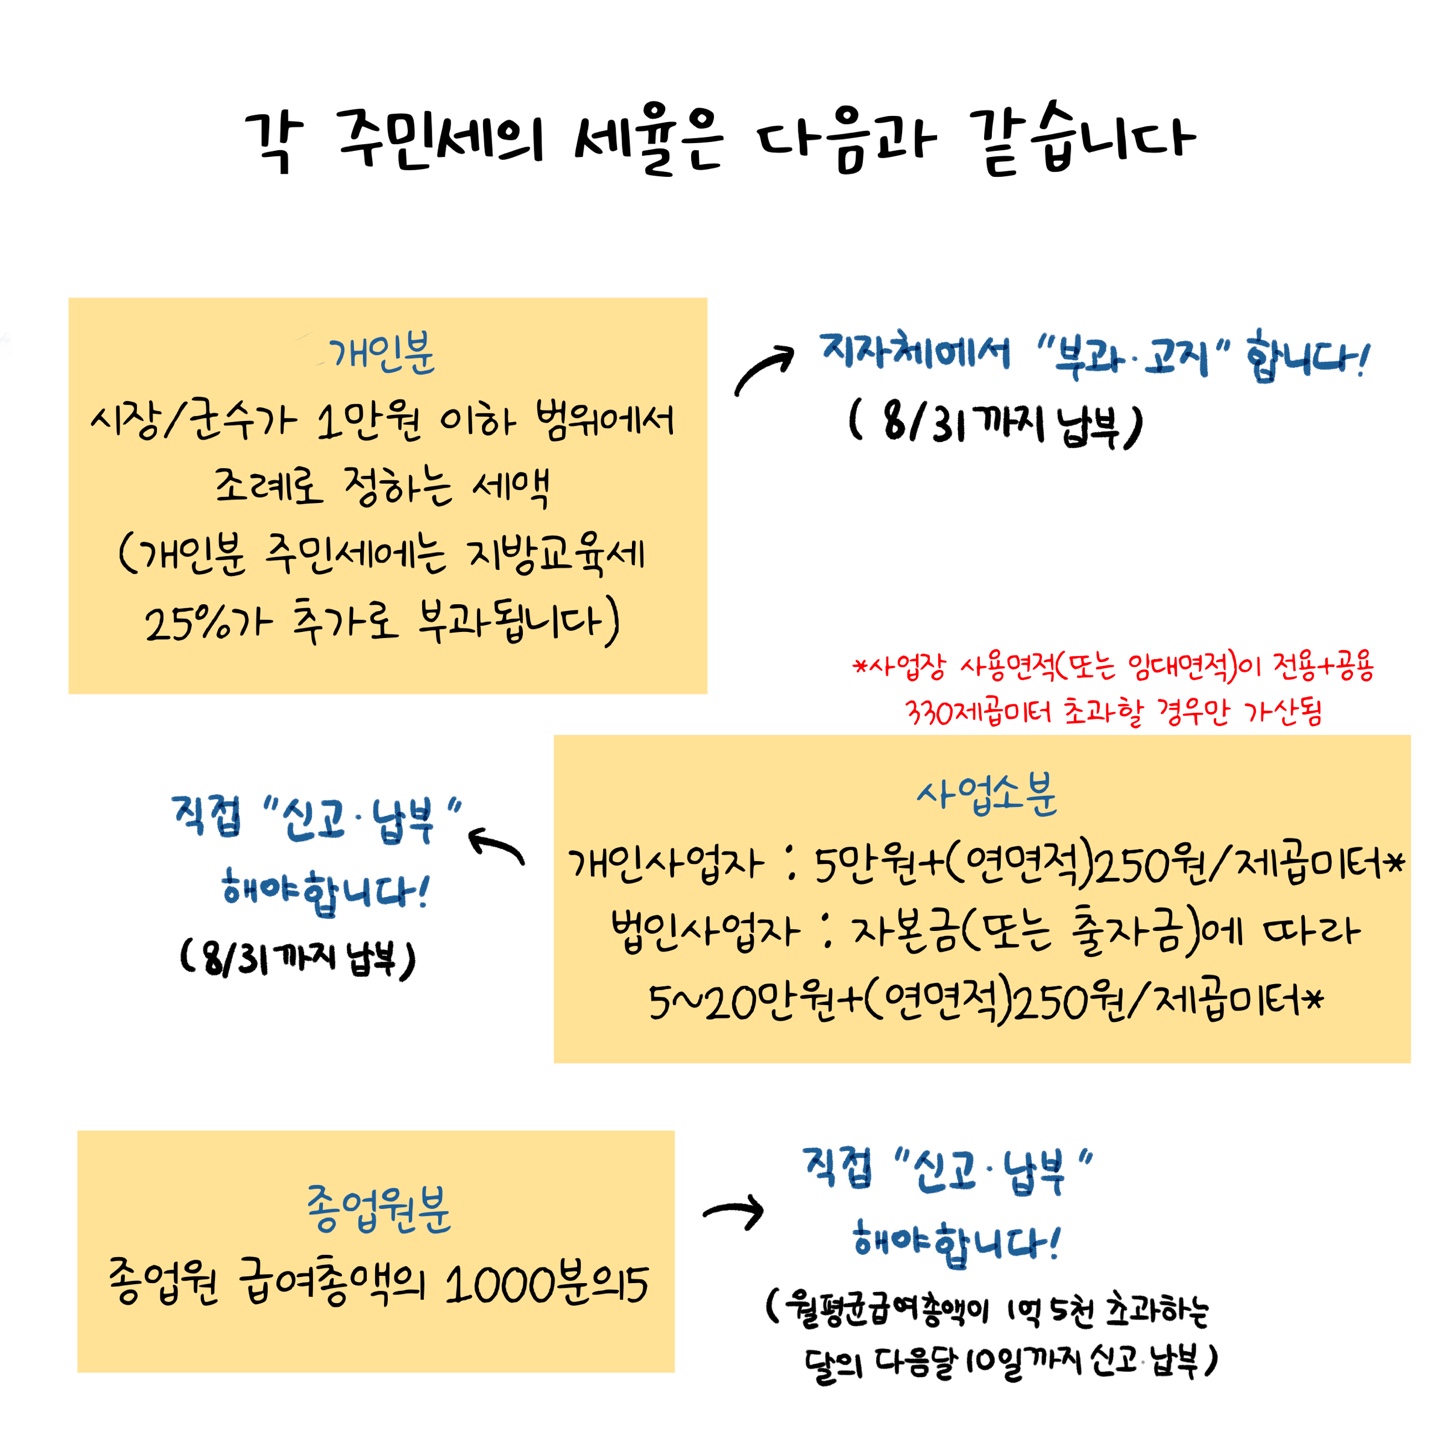 각 주민세의 세율은 다음과 같습니다
개인분
시장/군수가 1만원 이하 범위에서
조례로 정하는 세액
(개인분 주민세에는 지방교육세
25%가 추가로 부과됩니다)
지자체에서 "부과·고지" 합니다!
( 8/31까지 납부)
*사업장 사용면적(또는 임대면적)이 전용+공용
330제곱미터 초과할 경우만 가산됨
사업소분
개인사업자 : 5만원+(연면적)250원/제곱미터*
법인사업자 : 자본금(또는 출자금)에 따라
5~20만원+(연면적)250원/제곱미터*
직접 "신고·납부"
해야합니다!
(8/31까지 납부)
종업원분
종업원 급여총액의 1000분의5
직접 "신고·납부"
해야합니다!
(월평균급여총액이 1억5천 초과하는
달의 다음달 10일까지 신고·납부)